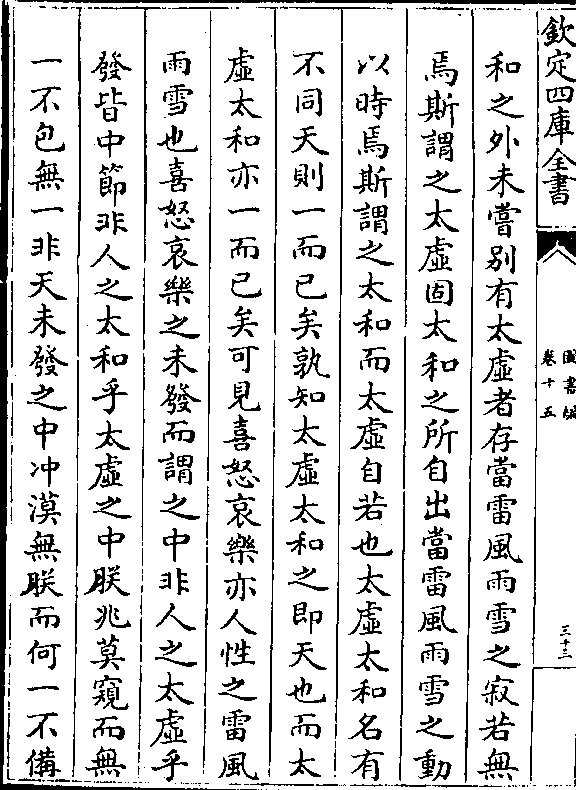 欽定四庫全書
圖書編
卷十五
三十三
和之外未嘗别有太虛者存當雷風雨雪之寂若無
焉斯謂之太虛固太和之所自出當雷風雨雪之動
以時焉斯謂之太和而太虛自若也太虛太和名有
不同天則一而已矣孰知太虛太和之即天也而太
虛太和亦一而已矣可見喜怒哀樂亦人性之雷風
雨雪也喜怒哀樂之未發而謂之中非人之太虛乎
發皆中節非人之太和乎太虛之中朕兆莫窺而無
一不包無一非天未發之中冲漠無朕而何一不備